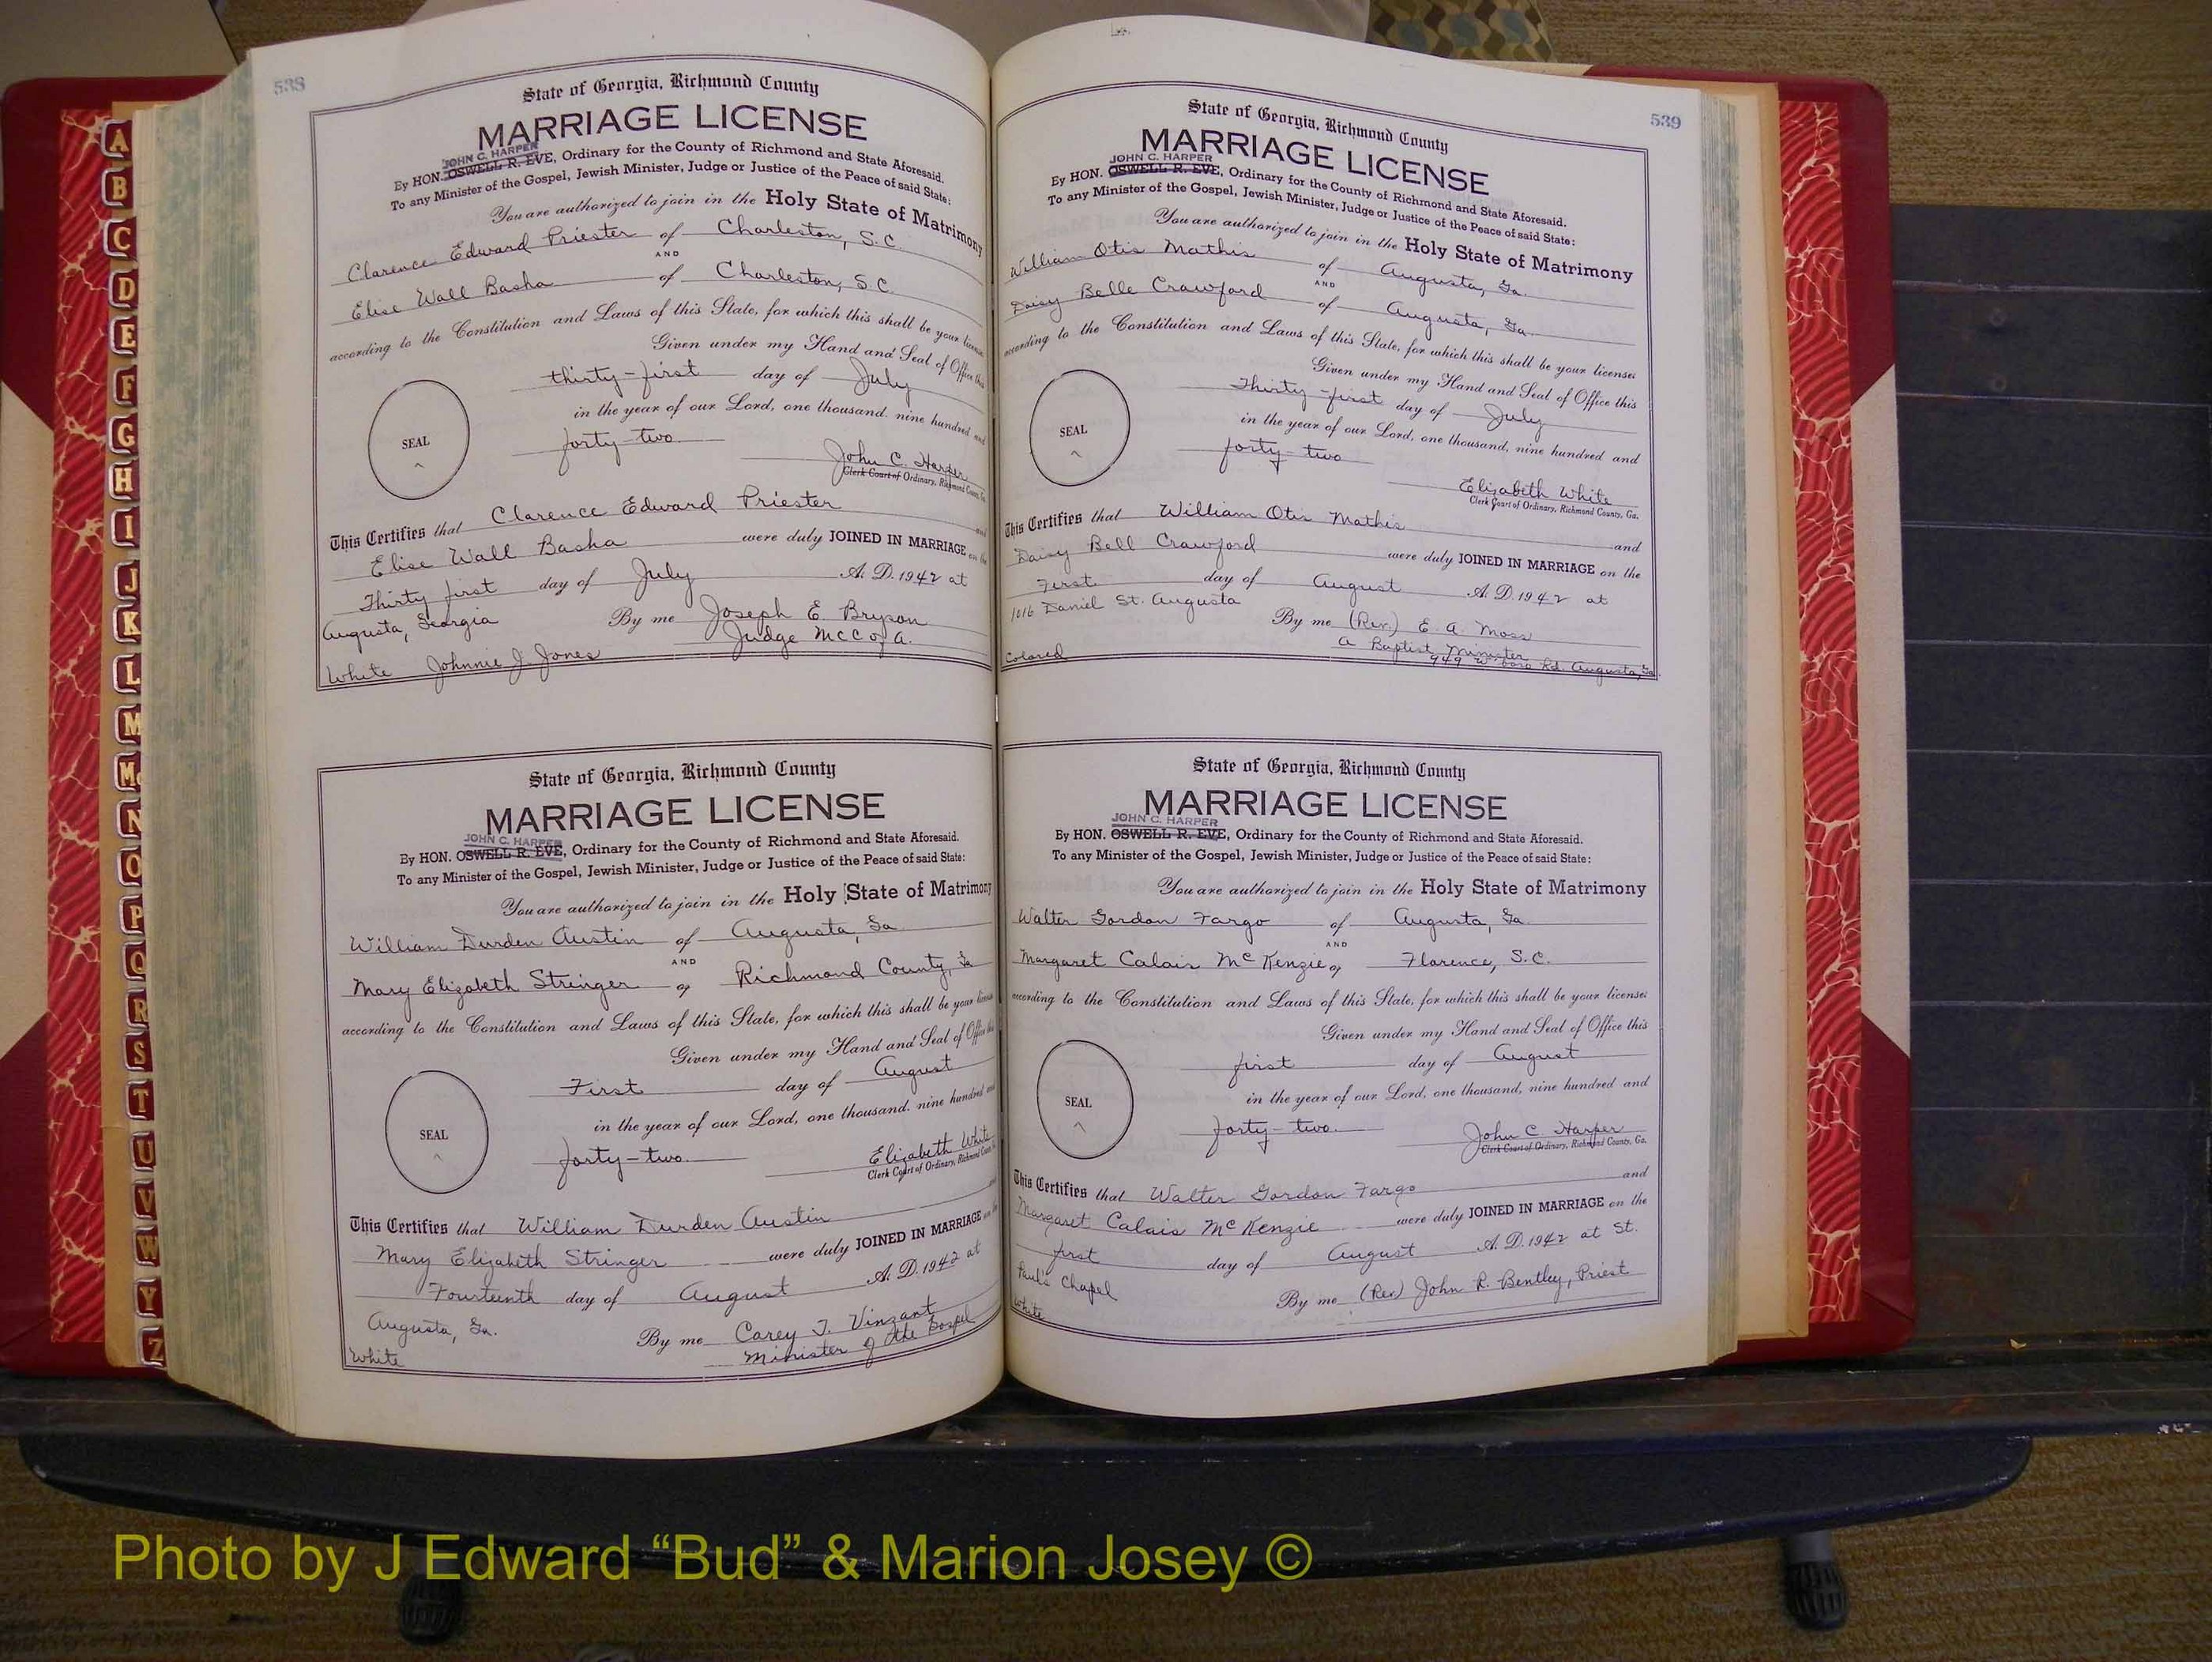 538
State of Georgia, Richmond County
MARRIAGE LICENSE
JOHN C. HARPER
By HON. OSWELL R. EVE, Ordinary for the County of Richmond and State Aforesaid.
To any Minister of the Gospel, Jewish Minister, Judge or Justice of the Peace of said State:
You are authorized to join in the Holy State of Matrimony
Clarence Edward Priester of Charleston, S.C.
AND
Elise Wall Basha of Charleston, S.C.
according to the Constitution and Laws of this State, for which this shall be your license
Given under my Hand and Seal of Office this
thirty-first day of July
in the year of our Lord, one thousand. nine hundred and
forty-two
SEAL
John C. Harper
Clerk Court of Ordinary, Richmond County, Ga.
This Certifies that Clarence Edward Priester and
Elise Wall Basha were duly JOINED IN MARRIAGE on the
Thirty first day of July A. D. 1942 at
Augusta, Georgia By me Joseph E. Bryson
Judge MCC of A.
White Johnnie J. Jones
State of Georgia, Richmond County
MARRIAGE LICENSE
JOHN C. HARPER
By HON. OSWELL R. EVE, Ordinary for the County of Richmond and State Aforesaid.
To any Minister of the Gospel, Jewish Minister, Judge or Justice of the Peace of said State:
You are authorized to join in the Holy State of Matrimony
William Durden Austin of Augusta, Ga
AND
Mary Elizabeth Stringer of Richmond County, Ga
according to the Constitution and Laws of this State, for which this shall be your license
Given under my Hand and Seal of Office this
First day of August
in the year of our Lord, one thousand. nine hundred and
forty-two
SEAL
Elizabeth White
Clerk Court of Ordinary, Richmond County, Ga.
This Certifies that William Durden Austin and
Mary Elizabeth Stringer were duly JOINED IN MARRIAGE on the
Fourteenth day of August A. D. 1942 at
Augusta, Ga. By me Carey T. Vinzant
Minister of the Gospel
White
539
State of Georgia, Richmond County
MARRIAGE LICENSE
JOHN C. HARPER
By HON. OSWELL R. EVE, Ordinary for the County of Richmond and State Aforesaid.
To any Minister of the Gospel, Jewish Minister, Judge or Justice of the Peace of said State:
You are authorized to join in the Holy State of Matrimony
William Otis Mathis of Augusta, Ga.
AND
Daisy Belle Crawford of Augusta, Ga.
according to the Constitution and Laws of this State, for which this shall be your license:
Given under my Hand and Seal of Office this
Thirty-first day of July
in the year of our Lord, one thousand, nine hundred and
forty-two
SEAL
Elizabeth White
Clerk Court of Ordinary, Richmond County, Ga.
This Certifies that William Otis Mathis and
Daisy Bell Crawford were duly JOINED IN MARRIAGE on the
First day of August A. D. 1942 at
1016 Daniel St. Augusta By me (Rev.) E. A. Moss
a Baptist Minister
Colored 949 W'boro Rd. Augusta, Ga
State of Georgia, Richmond County
MARRIAGE LICENSE
JOHN C. HARPER
By HON. OSWELL R. EVE, Ordinary for the County of Richmond and State Aforesaid.
To any Minister of the Gospel, Jewish Minister, Judge or Justice of the Peace of said State:
You are authorized to join in the Holy State of Matrimony
Walter Gordon Fargo of Augusta, Ga.
AND
Margaret Calais McKenzie of Florence, S.C.
according to the Constitution and Laws of this State, for which this shall be your license:
Given under my Hand and Seal of Office this
first day of August
in the year of our Lord, one thousand, nine hundred and
forty-two.
SEAL
John C. Harper
Clerk Court of Ordinary, Richmond County, Ga.
This Certifies that Walter Gordon Fargo and
Margaret Calais McKenzie were duly JOINED IN MARRIAGE on the
first day of August A. D. 1942 at St.
Paul's Chapel By me (Rev) John R. Bentley, Priest
White
A
B
C
D
E
F
G
H
I
J
K
L
M
Mc
N
O
P
Q
R
S
T
U
V
W
Y
Z
Photo by J Edward “Bud” & Marion Josey ©